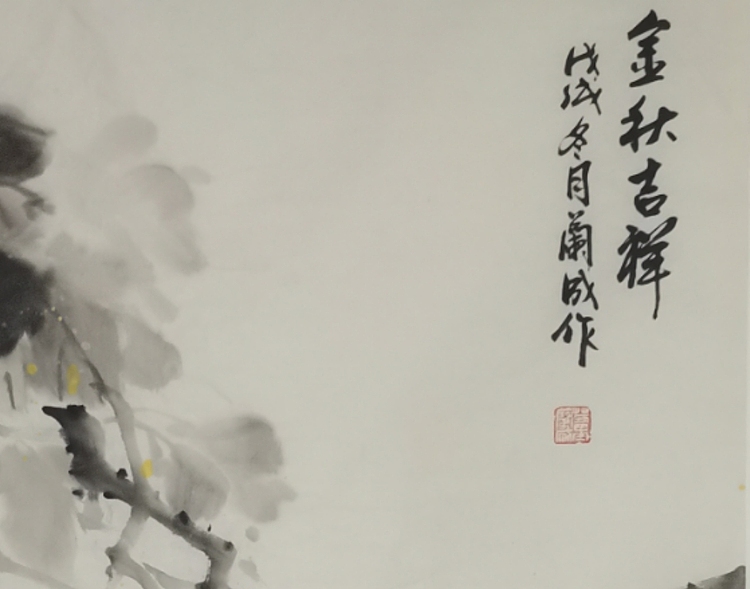 金秋吉祥
戊戌冬月蘭成作